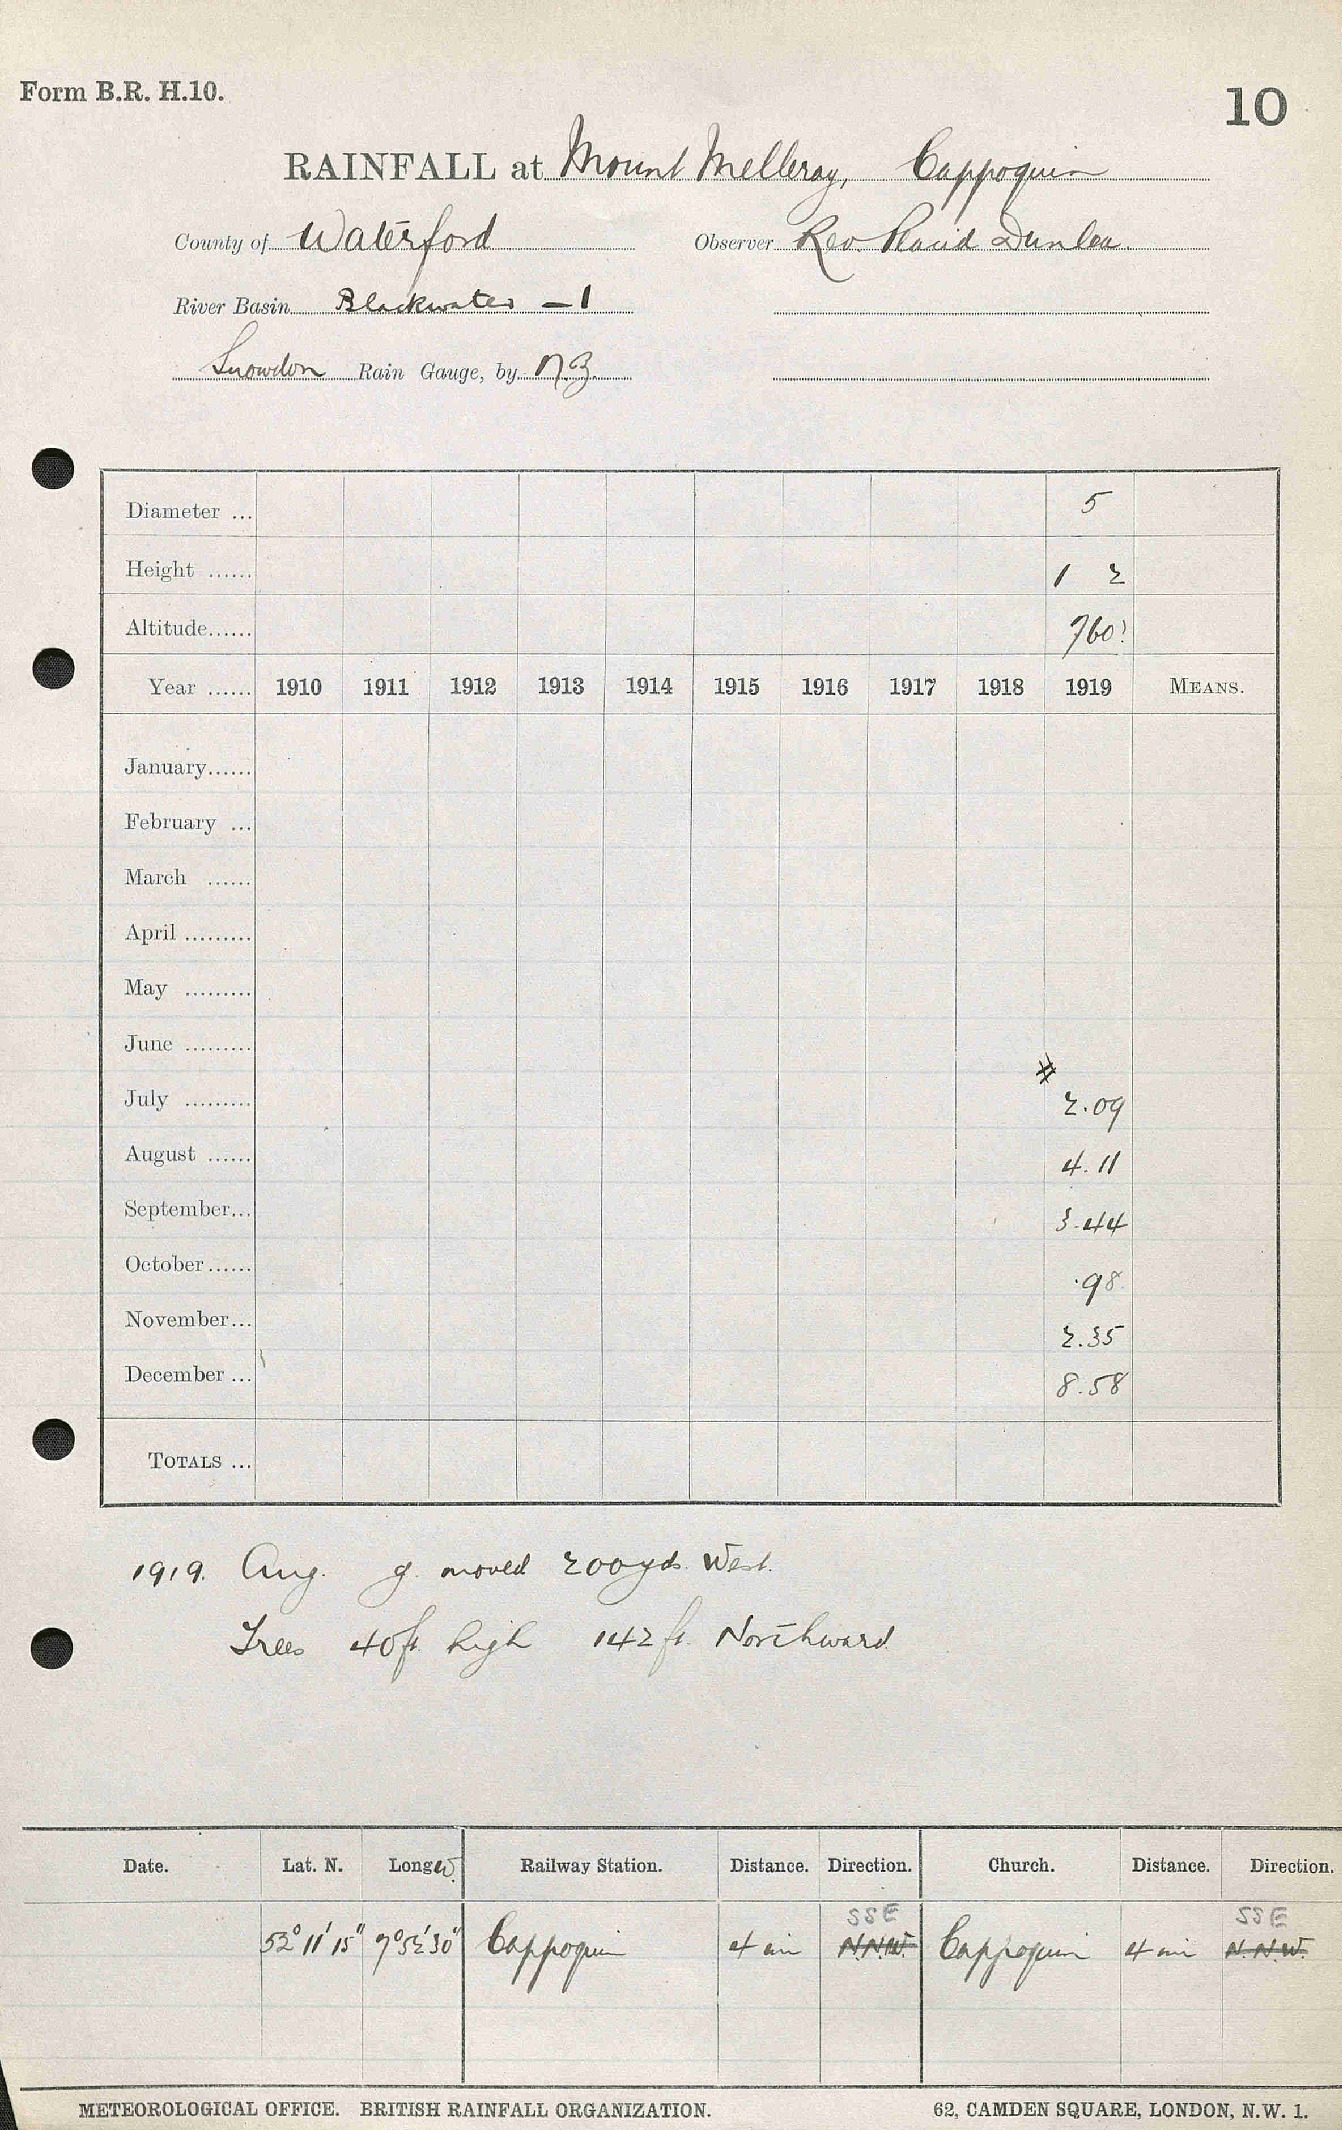 Form B.R. H.10.
10
RAINFALL at Mount Melleray, Cappoquin
County of Waterford Observer Rev. Placid Dunlea
River Basin Blackwater - 1
Snowdon Rain Gauge, by N.Z.
Diameter ... 5
Height ...... 1 2
Altitude...... 760'
Year ...... 1910 1911 1912 1913 1914 1915 1916 1917 1918 1919 MEANS.
January......
February ...
March ......
April .........
May .........
June .........
July ......... # 2.09
August ...... 4.11
September... 3.44
October...... .98
November... 2.35
December ... 8.58
TOTALS ...
1919. Aug. g. moved 200yds. West.
Trees 40ft. high 142 ft. Northward
Date. Lat. N. Long W. Railway Station. Distance. Direction. Church. Distance. Direction.
SSE SSE
52° 11' 15" 7° 52' 30" Cappoquin 4 mi N.N.W. Cappoquin 4 mi N.N.W.
METEOROLOGICAL OFFICE. BRITISH RAINFALL ORGANIZATION. 62, CAMDEN SQUARE, LONDON, N.W. 1.